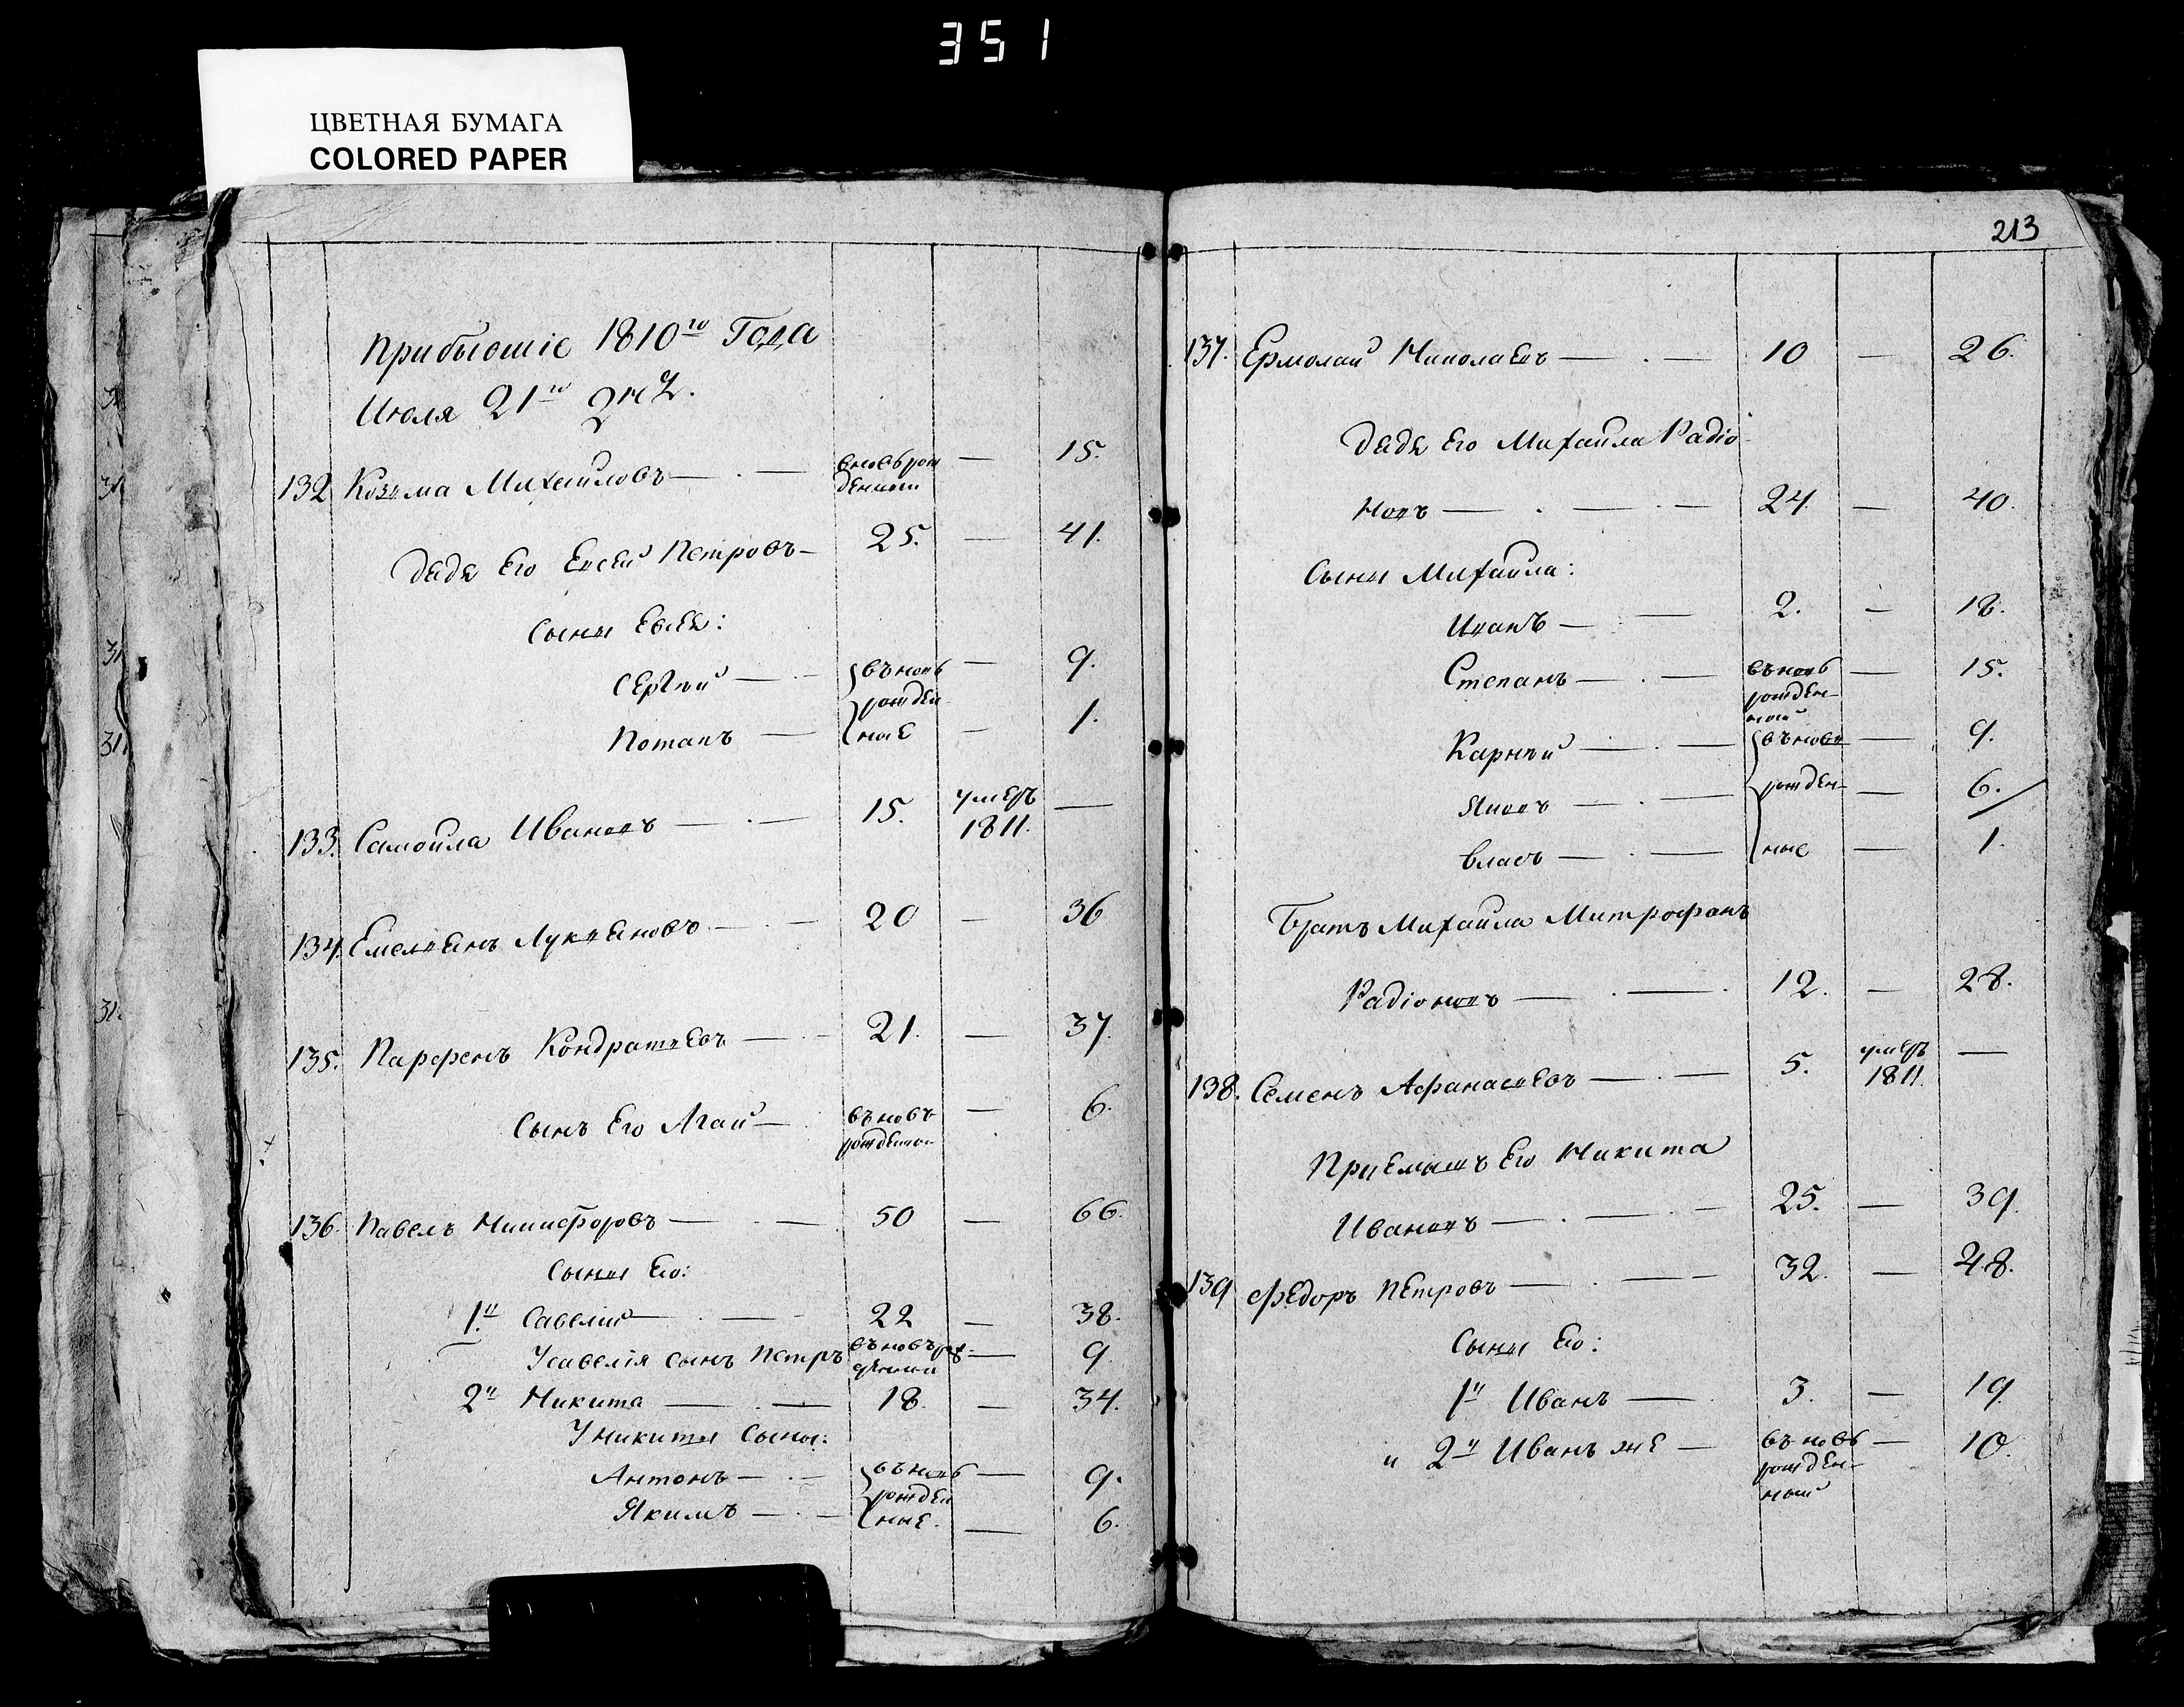 351
ЦВЕТНАЯ БУМАГА
COLORED PAPER
Прибывшіе 1810го Года
Июля 21го
132 Козма Михаиловъ — вновь рож — 15.
денной
Дядя Его Евсей Петровъ — 25. — 41.
Сыны Евсея:
Сергѣй — въновь — 9.
рожден
Потапъ — ные — 1.
133. Самойла Ивановъ — 15. умеръ —
1811.
134. Емельянъ Лукьяновъ — 20 — 36
135. Парфенъ Кондратьевъ — 21. — 37.
Сынъ Его Агай — въновь — 6.
рожденной
136. Павелъ Никифоровъ — 50 — 66.
Сыны Его:
1й Савелий — 22 — 38.
У савелія сынъ Петръ въновь рож — 9.
денный
2й Никита — 18. — 34.
У никиты Сыны:
Антонъ — въновь — 9.
рожден
Якимъ — ные. — 6.
213
137. Ермолай Николаевъ — 10 — 26.
Дядя Его Михайла Радіо
новъ — 24. — 40.
Сыны Михайла:
Иванъ — 2. — 18.
Степанъ — въновь — 15.
рожден-
ной
Карнѣй — въновь — 9.
Яковъ — рожден- — 6.
Власъ — ные — 1.
Братъ Михайла Митрофанъ
Радіоновъ — 12. — 28.
138. Семенъ Афанасьевъ — 5. умеръ —
1811.
Приемышъ Его Никита
Ивановъ — 25. — 39.
139 Федоръ Петровъ — 32. — 48.
Сыны Его:
1й Иванъ — 3. — 19.
и 2й Иванъ же — въновь — 10.
рожден-
ный